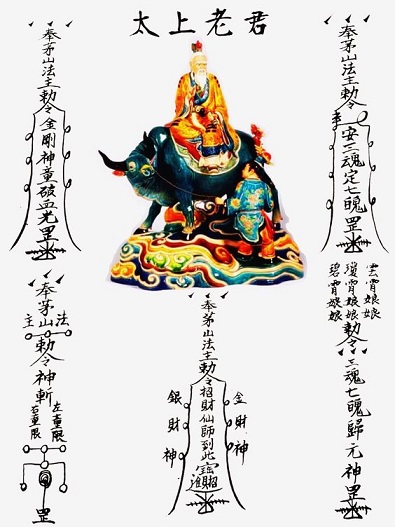 太上老君
奉茅山法主勅令安三魂定七魄罡
奉茅山法主勅令金剛神童破血光罡
雲霄娘娘
瓊霄娘娘
碧霄娘娘
勅令三魂七魄歸元神罡
奉茅山法主勅令招財仙師到此
金財神
銀財神
奉茅山
法主
勅令神斬
左童限
右童限
罡